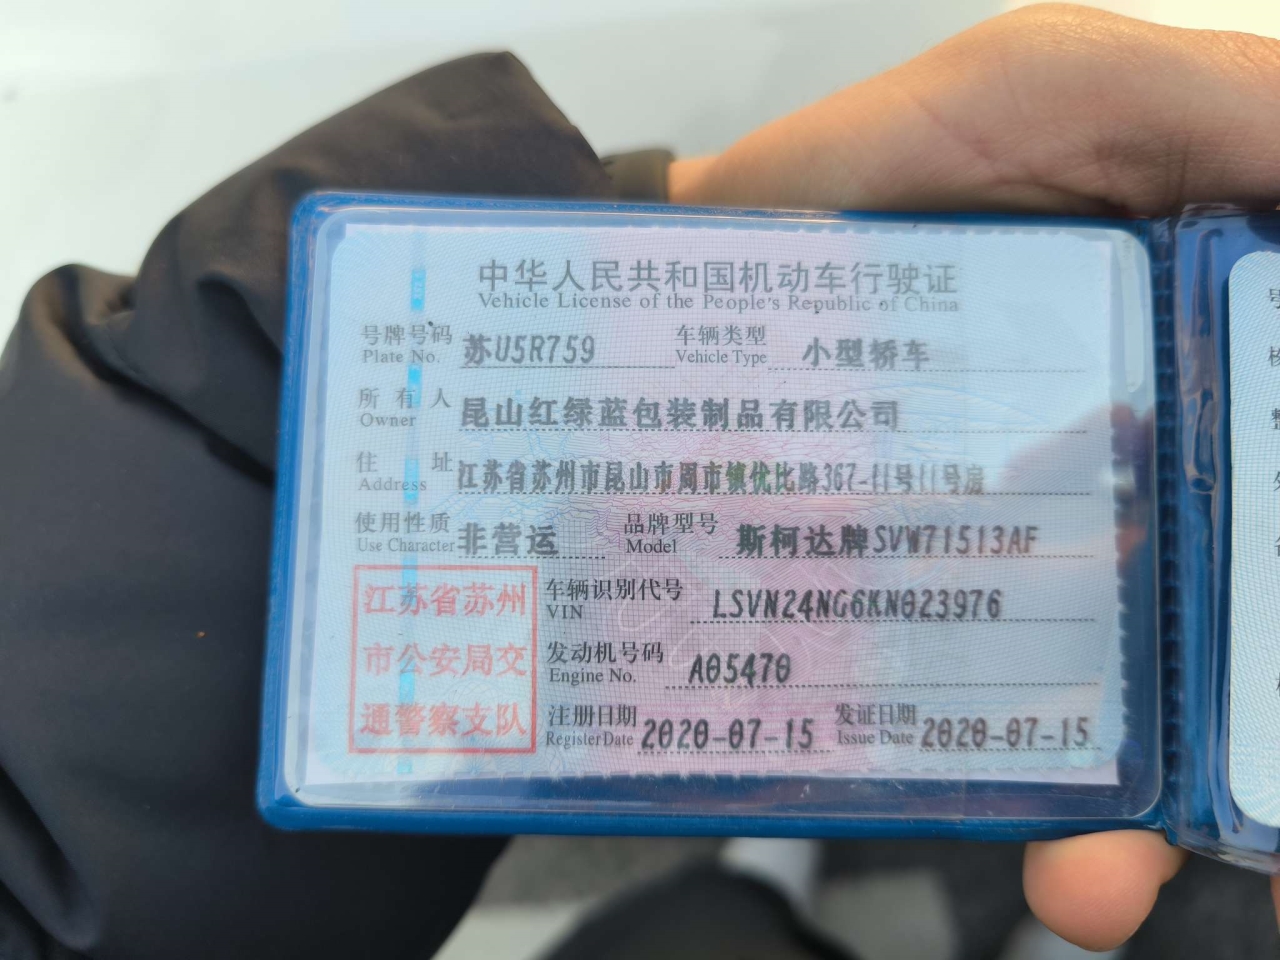 中华人民共和国机动车行驶证
Vehicle License of the People's Republic of China
号牌号码 苏U5R759 车辆类型 小型轿车
Plate No. Vehicle Type
所有人 昆山红绿蓝包装制品有限公司
Owner
住址 江苏省苏州市昆山市周市镇优比路367-11号11号房
Address
使用性质 非营运 品牌型号 斯柯达牌SVW71513AF
Use Character Model
江苏省苏州
市公安局交
通警察支队
车辆识别代号 LSVN24NG6KN023976
VIN
发动机号码 A05470
Engine No.
注册日期 2020-07-15 发证日期 2020-07-15
Register Date Issue Date
号